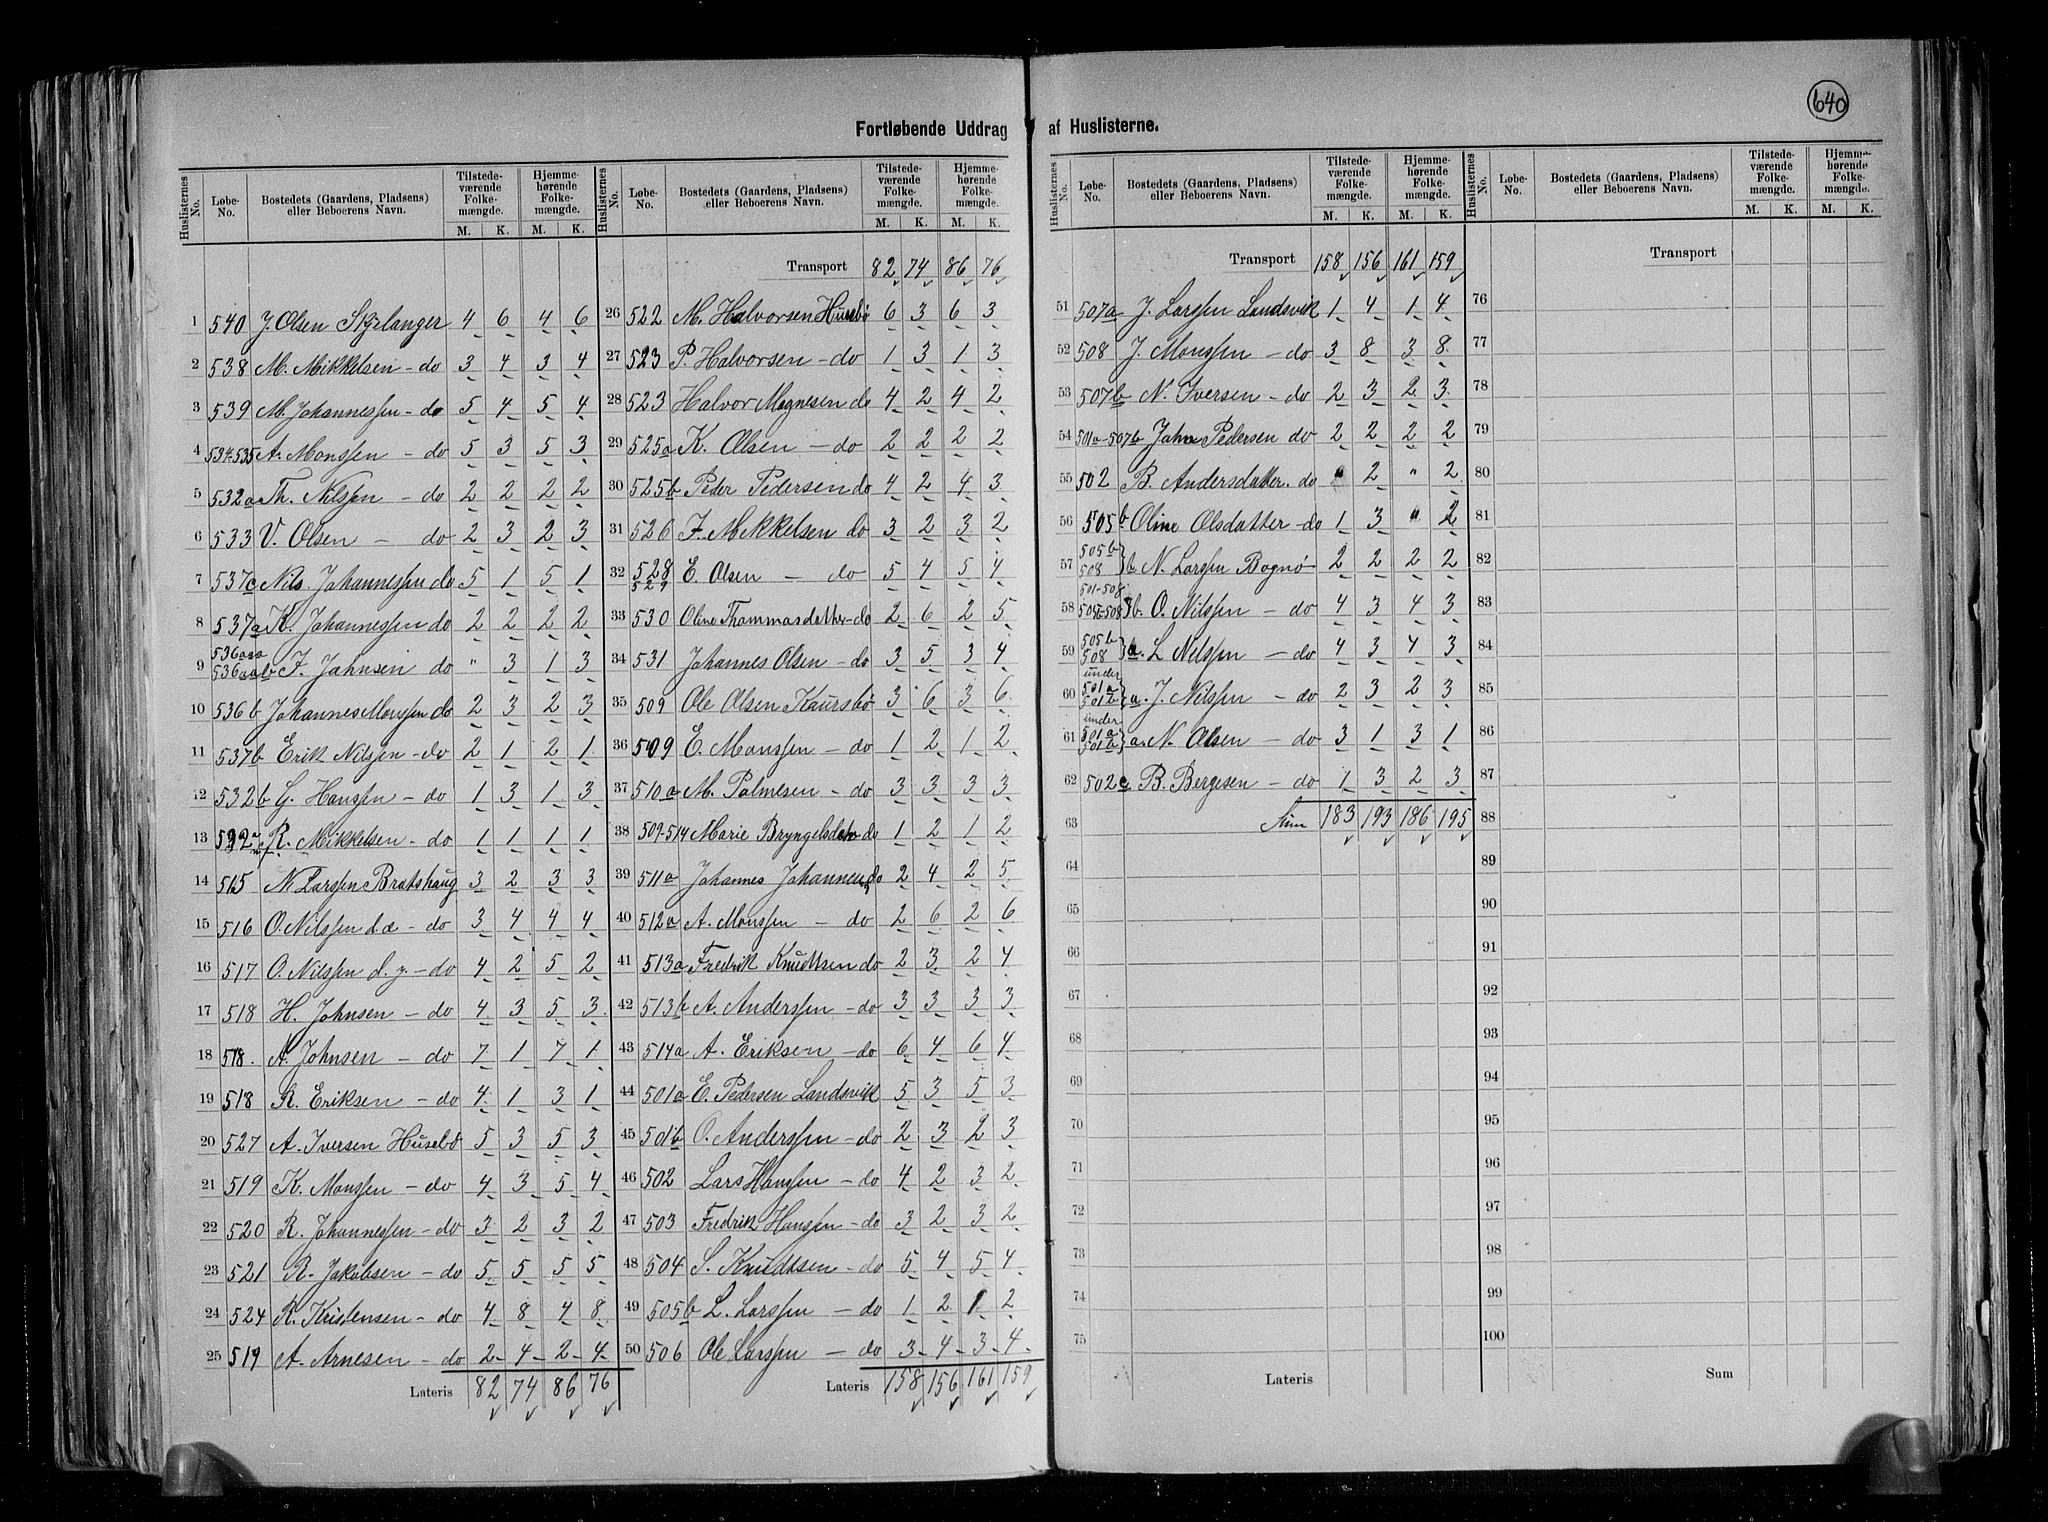 640
Fortløbende Uddrag af Huslisterne.
Huslisternes No. Løbe-No. Bostedets (Gaardens, Pladsens) eller Beboerens Navn. Tilstedeværende Folkemængde. M. K. Hjemmehørende Folkemængde. M. K.
1 540 J. Olsen Skjelanger 4 6 4 6
2 538 M. Mikkelsen - do 3 4 3 4
3 539 M. Johannessen - do 5 4 5 4
4 534-535 A. Monssen - do 5 3 5 3
5 532a Th. Nilssen - do 2 2 2 2
6 533 V. Olsen - do 2 3 2 3
7 537c Nils Johannessen do 5 1 5 1
8 537a K. Johannessen do 2 2 2 2
9 536aaa 536aab F. Johnsen do " 3 1 3
10 536b Johannes Monssen do 2 3 2 3
11 537b Erik Nilssen - do 2 1 2 1
12 532b G. Hanssen - do 1 3 1 3
13 532a R. Mikkelsen - do 1 1 1 1
14 515 N. Larssen Bratshaug 3 2 3 3
15 516 O. Nilssen d. æ - do 3 4 4 4
16 517 O. Nilssen d. y. - do 4 2 5 2
17 518 H. Johnsen - do 4 3 5 3
18 518. A. Johnsen - do 7 1 7 1
19 518 R. Eriksen - do 4 1 3 1
20 527 A. Iversen Husebø 5 3 5 3
21 519 K. Monssen - do 4 3 5 4
22 520 R. Johannessen - do 3 2 3 2
23 521 R. Jakobsen - do 5 5 5 5
24 524 R. Kristensen - do 4 8 4 8
25 519 A. Arnesen - do 2 4 2 4
Lateris 82 74 86 76
Huslisternes No. Løbe-No. Bostedets (Gaardens, Pladsens) eller Beboerens Navn. Tilstedeværende Folkemængde. M. K. Hjemmehørende Folkemængde. M. K.
Transport 82 74 86 76
26 522 M. Halvorsen Husebø 6 3 6 3
27 523 P. Halvorsen - do 1 3 1 3
28 523 Halvor Magnesen do 4 2 4 2
29 525a K. Olsen - do 2 2 2 2
30 525b Peder Pedersen do 4 2 4 3
31 526 F. Mikkelsen do 3 2 3 2
32 528 529 E. Olsen - do 5 4 5 4
33 530 Oline Thommasdatter - do 2 6 2 5
34 531 Johannes Olsen - do 3 5 3 4
35 509 Ole Olsen Kaursbø 3 6 3 6
36 509 E. Monssen - do 1 2 1 2
37 510a M. Palmesen - do 3 3 3 3
38 509-514 Marie Bryngelsdatr do 1 2 1 2
39 511a Johannes Johannesen do 2 4 2 5
40 512a A. Monssen - do 2 6 2 6
41 513a Fredrik Knudtsen do 2 3 2 4
42 513b A. Anderssen - do 3 3 3 3
43 514a A. Eriksen - do 6 4 6 4
44 501a E. Pedersen Landsvik 5 3 5 3
45 501b O. Anderssen - do 2 3 2 3
46 502 Lars Hanssen - do 4 2 3 2
47 503 Fredrik Hanssen - do 3 2 3 2
48 504 S. Knudtsen - do 5 4 5 4
49 505b L. Larssen - do 1 2 1 2
50 506 Ole Larssen - do 3 4 3 4
Lateris 158 156 161 159
Huslisternes No. Løbe-No. Bostedets (Gaardens, Pladsens) eller Beboerens Navn. Tilstedeværende Folkemængde. M. K. Hjemmehørende Folkemængde. M. K.
Transport 158 156 161 159
51 507a J. Larssen Landsvik 1 4 1 4
52 508 J. Monssen - do 3 8 3 8
53 507b N. Iversen - do 2 3 2 3
54 501a-507b John Pedersen do 2 2 2 2
55 502 B. Andersdatter. do " 2 " 2
56 505b Oline Olsdatter - do 1 3 " 2
57 505b 508 } b N. Larssen Bognø 2 2 2 2
58 501-508 b. O. Nilssen - do 4 3 4 3
59 505b 508 } a. L. Nilssen - do 4 3 4 3
60 under 501a 501b } a. J. Nilssen - do 2 3 2 3
61 under 501a 501b } a. N. Olsen - do 3 1 3 1
62 502c B. Bergesen - do 1 3 2 3
63 Sum 183 193 186 195
64
65
66
67
68
69
70
71
72
73
74
75
Lateris
Huslisternes No. Løbe-No. Bostedets (Gaardens, Pladsens) eller Beboerens Navn. Tilstedeværende Folkemængde. M. K. Hjemmehørende Folkemængde. M. K.
Transport
76
77
78
79
80
81
82
83
84
85
86
87
88
89
90
91
92
93
94
95
96
97
98
99
100
Sum